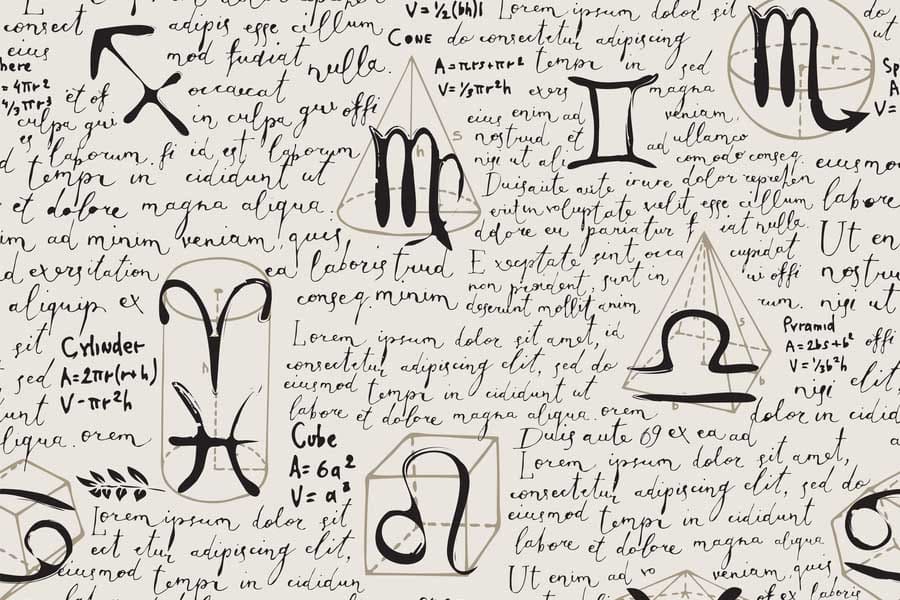 consect adipis esse cillum
V = ½(bh)l Lorem ipsum dolor sit
Cone do consectetur adipiscing
do
ut
eius mod fugiat nulla.
A=πrs+πr² tempr in sed
here
= 4πr²
4/3πr³
et of occaecat
V=⅓πr²h exers magna
Sp
A
V=
culpa qui in culpa qui offi
eius enim ad veniam,
es
laborum. fi id est laborum
nostrud et ad ullamco
tempr in cididunt ut
nisi ut ali comodo conseq.
eiusmo
et dolore magna aliqua.
Duis aute aute irure dolor reprehen
labore
im ad minim veniam, quis
voluptate velit esse cillum
adore eu pariatur f iat nulla.
Ut en
d exersitation ea laboris trud
Exceptate sint, occa cupidat
nostru
aliquip ex conseq. minim
non proident, sunt in ui offi
deserunt mollit anim rum.
nisi ut
sit
Lorem ipsum dolor sit amet, id
Cylinder
A=2πr(r+h)
V-πr²h
Pyramid
A=2bs+b²
V=⅓b²h
offi
sed
consectetur adipiscing elit, sed do
nisi
elit,
unt
eiusmod tempr in cididunt ut
labore et dolore magna aliqua. orem
dolor in cidid
liqua. orem
Cube
A=6a²
V=a³
Duis aute 69 ex ea ad
Lorem ipsum dolor sit amet,
consectetur adipiscing elit, sed do
Lorem ipsum dolor sit
eiusmod tempr in cididunt
ect etur adipiscing elit,
labore et dolore magna aliqua
eiusmod tempr in cididun
Ut enim ad vo veniam, quis
of ex laboris